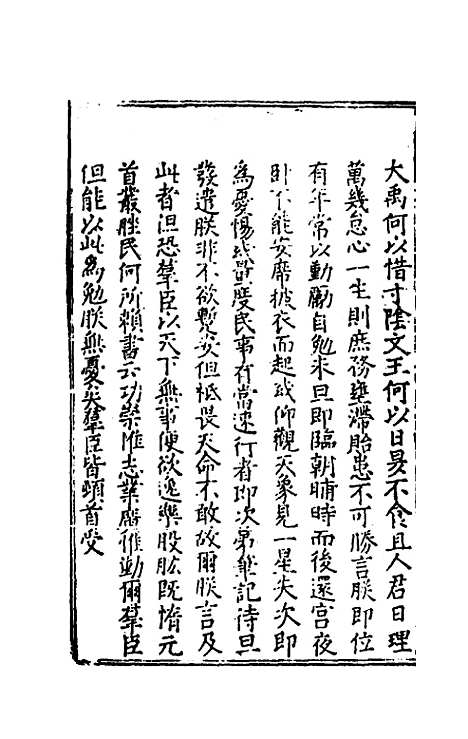 大禹何以惜寸陰文王何以日昃不食且人君日理
萬幾怠心一生則庶務壅滯貽患不可勝言朕即位
有年常以勤勵自勉未旦即臨朝晡時而後還宮夜
卧不能安席披衣而起或仰觀天象見一星失次即
為憂惕或量度民事有當速行者即次第筆記待旦
發遣朕非不欲暫安但祗畏天命不敢故爾朕言及
此者但恐羣臣以天下無事便欲逸樂股肱既惰元
首叢脞民何所賴書云功崇惟志業廣惟勤爾羣臣
但能以此為勉朕無憂矣羣臣皆頓首受